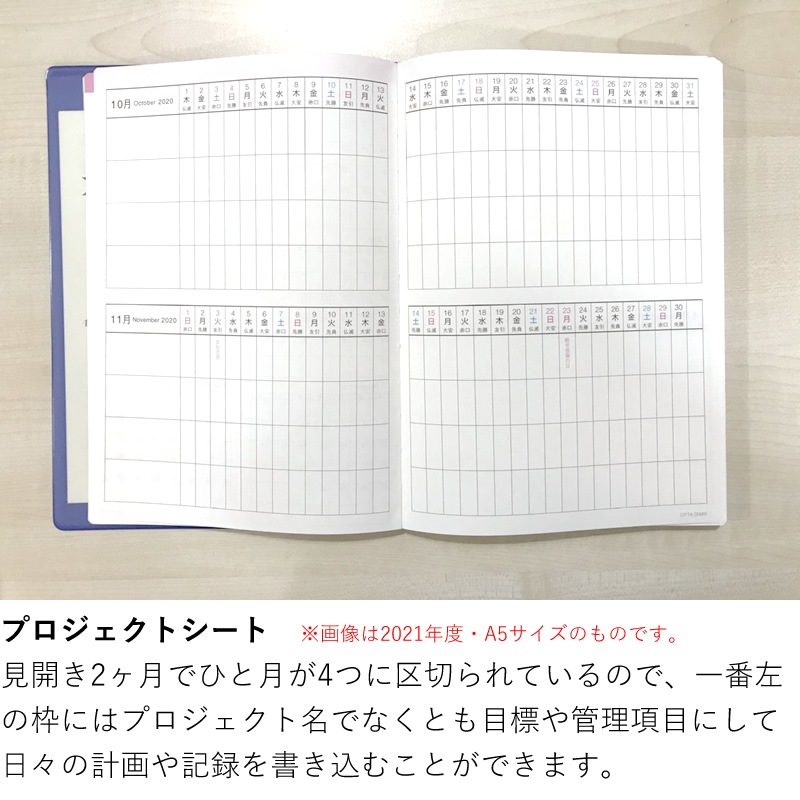 1 2 3 4 5 6 7 8 9 10 11 12 13
10月 October 2020 木 金 土 日 月 火 水 木 金 土 日 月 火
仏滅 大安 赤口 先勝 友引 先負 仏滅 大安 赤口 先勝 友引 先負 仏滅
14 15 16 17 18 19 20 21 22 23 24 25 26 27 28 29 30 31
水 木 金 土 日 月 火 水 木 金 土 日 月 火 水 木 金 土
大安 赤口 先勝 先負 仏滅 大安 赤口 先勝 友引 先負 仏滅 大安 赤口 先勝 友引 先負 仏滅 大安
1 2 3 4 5 6 7 8 9 10 11 12 13
11月 November 2020 日 月 火 水 木 金 土 日 月 火 水 木 金
赤口 先勝 友引 先負 仏滅 大安 赤口 先勝 友引 先負 仏滅 大安 赤口
文化の日
14 15 16 17 18 19 20 21 22 23 24 25 26 27 28 29 30
土 日 月 火 水 木 金 土 日 月 火 水 木 金 土 日 月
先勝 仏滅 大安 赤口 先勝 友引 先負 仏滅 大安 赤口 先勝 友引 先負 仏滅 大安 赤口 先勝
勤労感謝の日
プロジェクトシート ※画像は2021年度・A5サイズのものです。
見開き2ヶ月でひと月が4つに区切られているので、一番左
の枠にはプロジェクト名でなくとも目標や管理項目にして
日々の計画や記録を書き込むことができます。